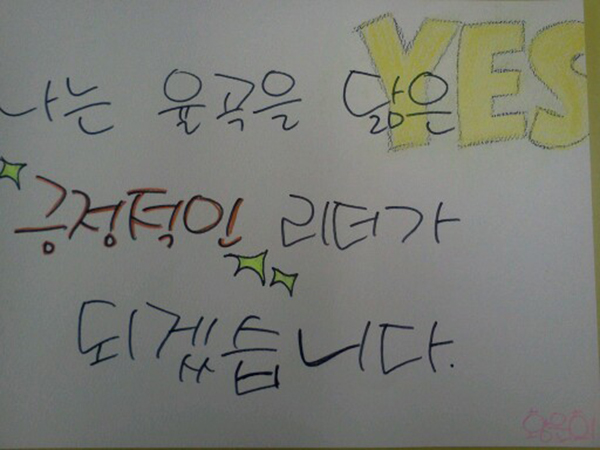 YES
나는 율곡을 닮은
긍정적인 리더가
되겠습니다.